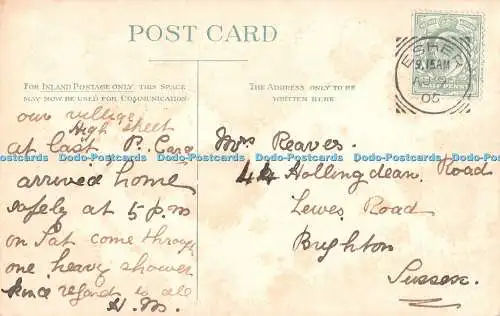 POST CARD
FOR INLAND POSTAGE ONLY THIS SPACE
MAY NOW BE USED FOR COMMUNICATION.
THE ADDRESS ONLY TO BE
WRITTEN HERE
ESHER
9.15AM
05
HALF PENNY
our village
High street
at last P. Card
arrived home
safely at 5 p.m
on Sat come through
one heavy shower
kind regards to all
H.M.
Mrs Reaves.
44 Hollingdean Road
Lewes Road
Brighton
Sussex.
Dodo-Postcards Dodo-Postcards Dodo-Postcards Dodo-Postcards Dodo-Postcards Dodo-Postcards